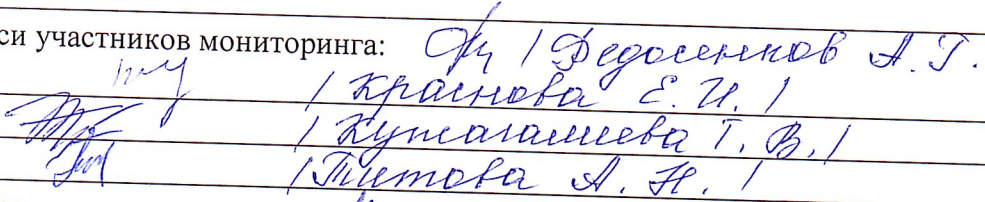 си участников мониторинга: / Федосенков А. Г.
/ Краснова Е. И. /
/ Кутагалиева Т. В. /
/ Титова А. Н. /